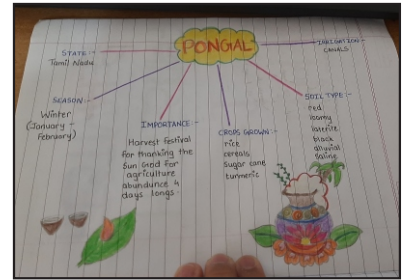 PONGAL
STATE :-
Tamil Nadu
IRRIGATION :-
CANALS
SEASON :-
Winter
(January -
February)
IMPORTANCE :-
Harvest festival
for thanking the
Sun God for
agriculture
abundunce 4
days longs
CROPS GROWN :-
rice
cereals
sugar cane
turmeric
SOIL TYPE :-
red
loamy
laterite
black
alluvial
saline